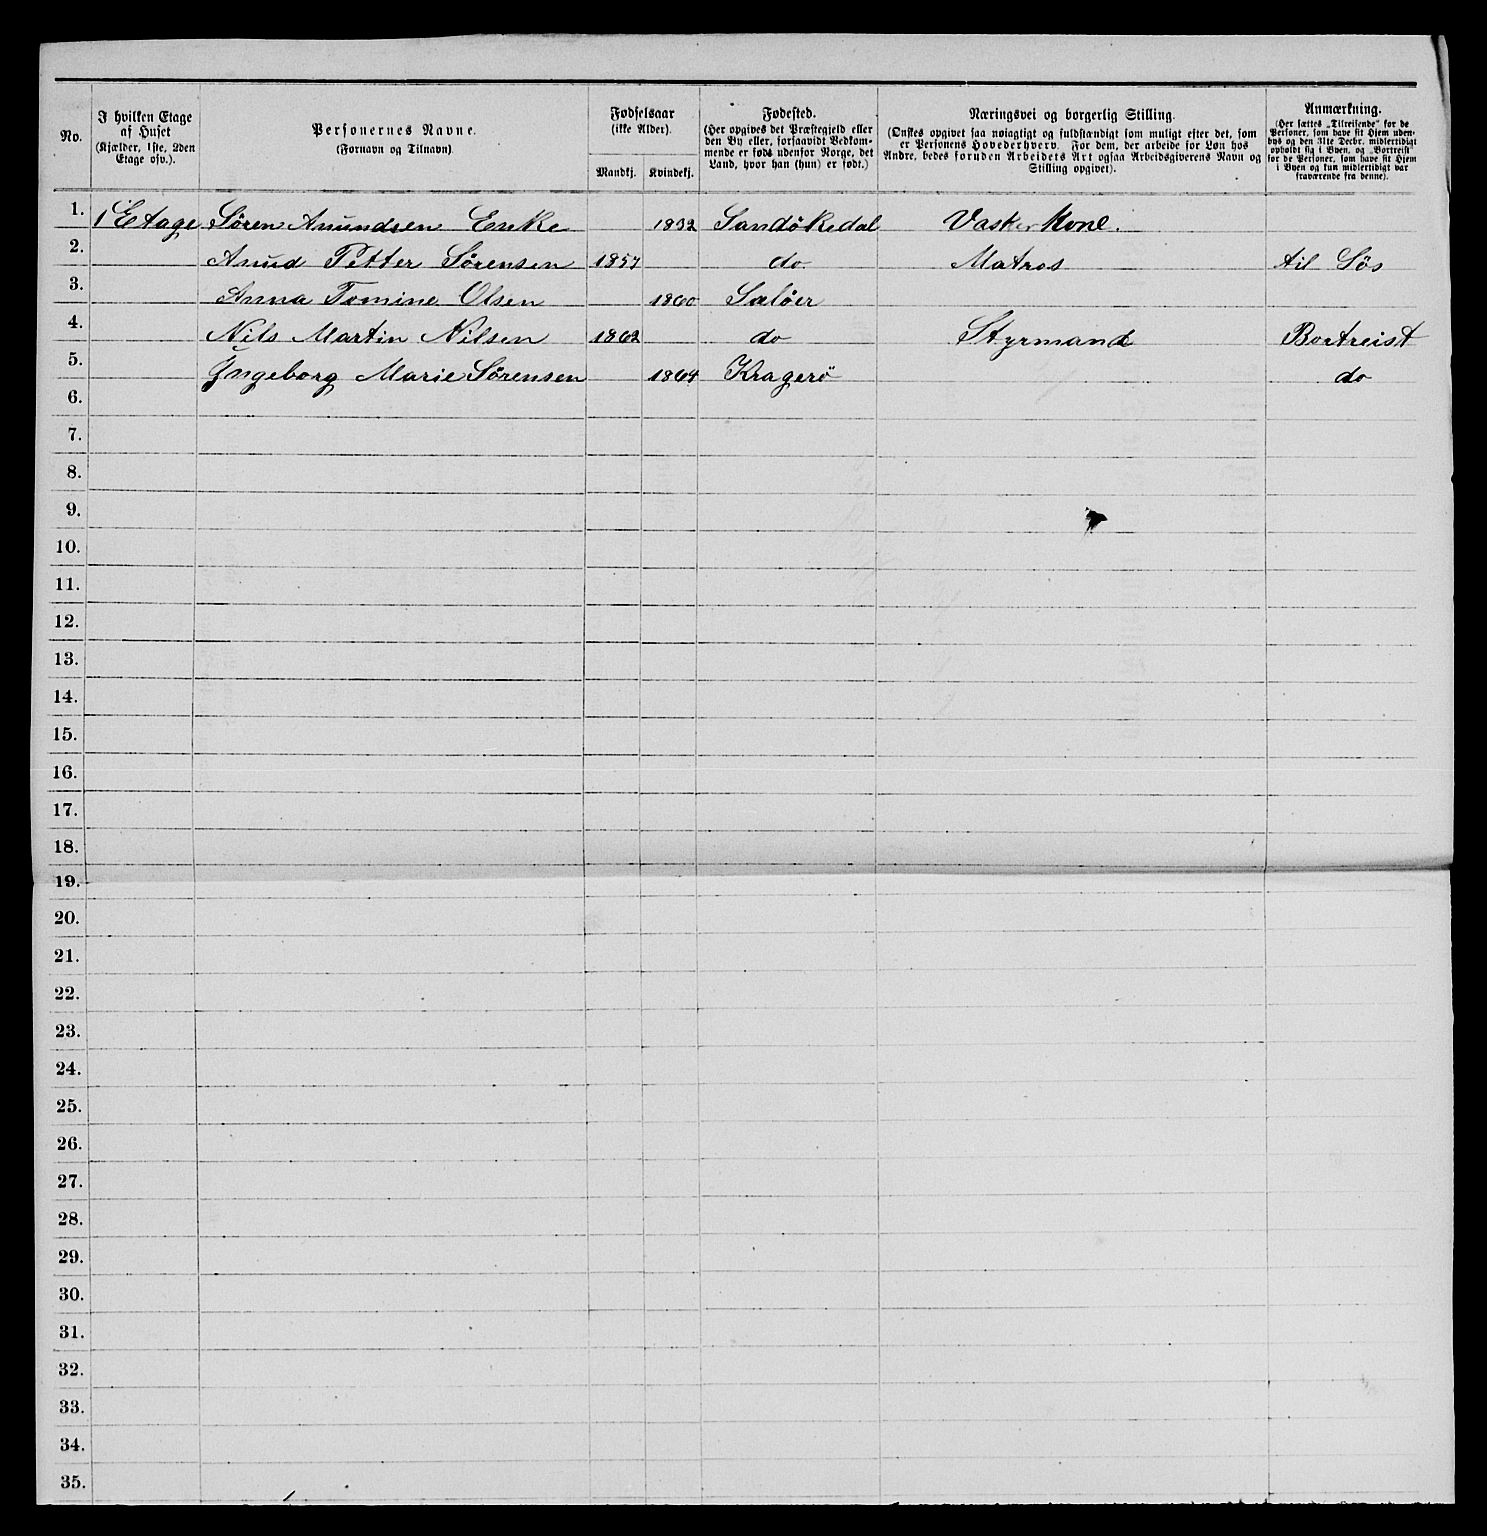 No.
I hvilken Etage af Huset (Kjælder, 1ste, 2den Etage osv.).
Personernes Navne. (Fornavn og Tilnavn)
Fødselsaar (ikke Alder).
Mandkj. Kvindekj.
Fødested. (Her opgives det Præstegjeld eller den By eller, forsaavidt Vedkommende er født udenfor Norge, det Land, hvor han (hun) er født.)
Næringsvei og borgerlig Stilling. (Ønskes opgivet saa nøiagtigt og fuldstændigt som muligt efter det, som er Personens Hovederhverv. For dem, der arbeide for Løn hos Andre, bedes foruden Arbeidets Art ogsaa Arbeidsgiverens Navn og Stilling opgivet).
Anmærkning. (Her sættes „Tilreisende“ for de Personer, som have sit Hjem udenbys og den 31te Decbr. midlertidigt opholdt sig i Byen, og „Bortreist“ for de Personer, som have sit Hjem i Byen og kun midlertidigt var fraværende fra denne).
1. 1 Etage Søren Anundsen Enke 1832 Sandøkedal Vasker Kone.
2. Anud Petter Sørensen 1857 do. Matros til Søs
3. Anna Tomine Olsen 1860 Søløer
4. Nils Martin Nilsen 1862 do Styrmand Bortreist
5. Yngeborg Marie Sørensen 1864 Kragerö do
6.
7.
8.
9.
10.
11.
12.
13.
14.
15.
16.
17.
18.
19.
20.
21.
22.
23.
24.
25.
26.
27.
28.
29.
30.
31.
32.
33.
34.
35.